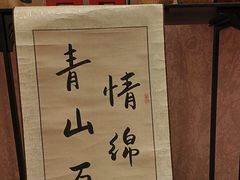 情绵
青山